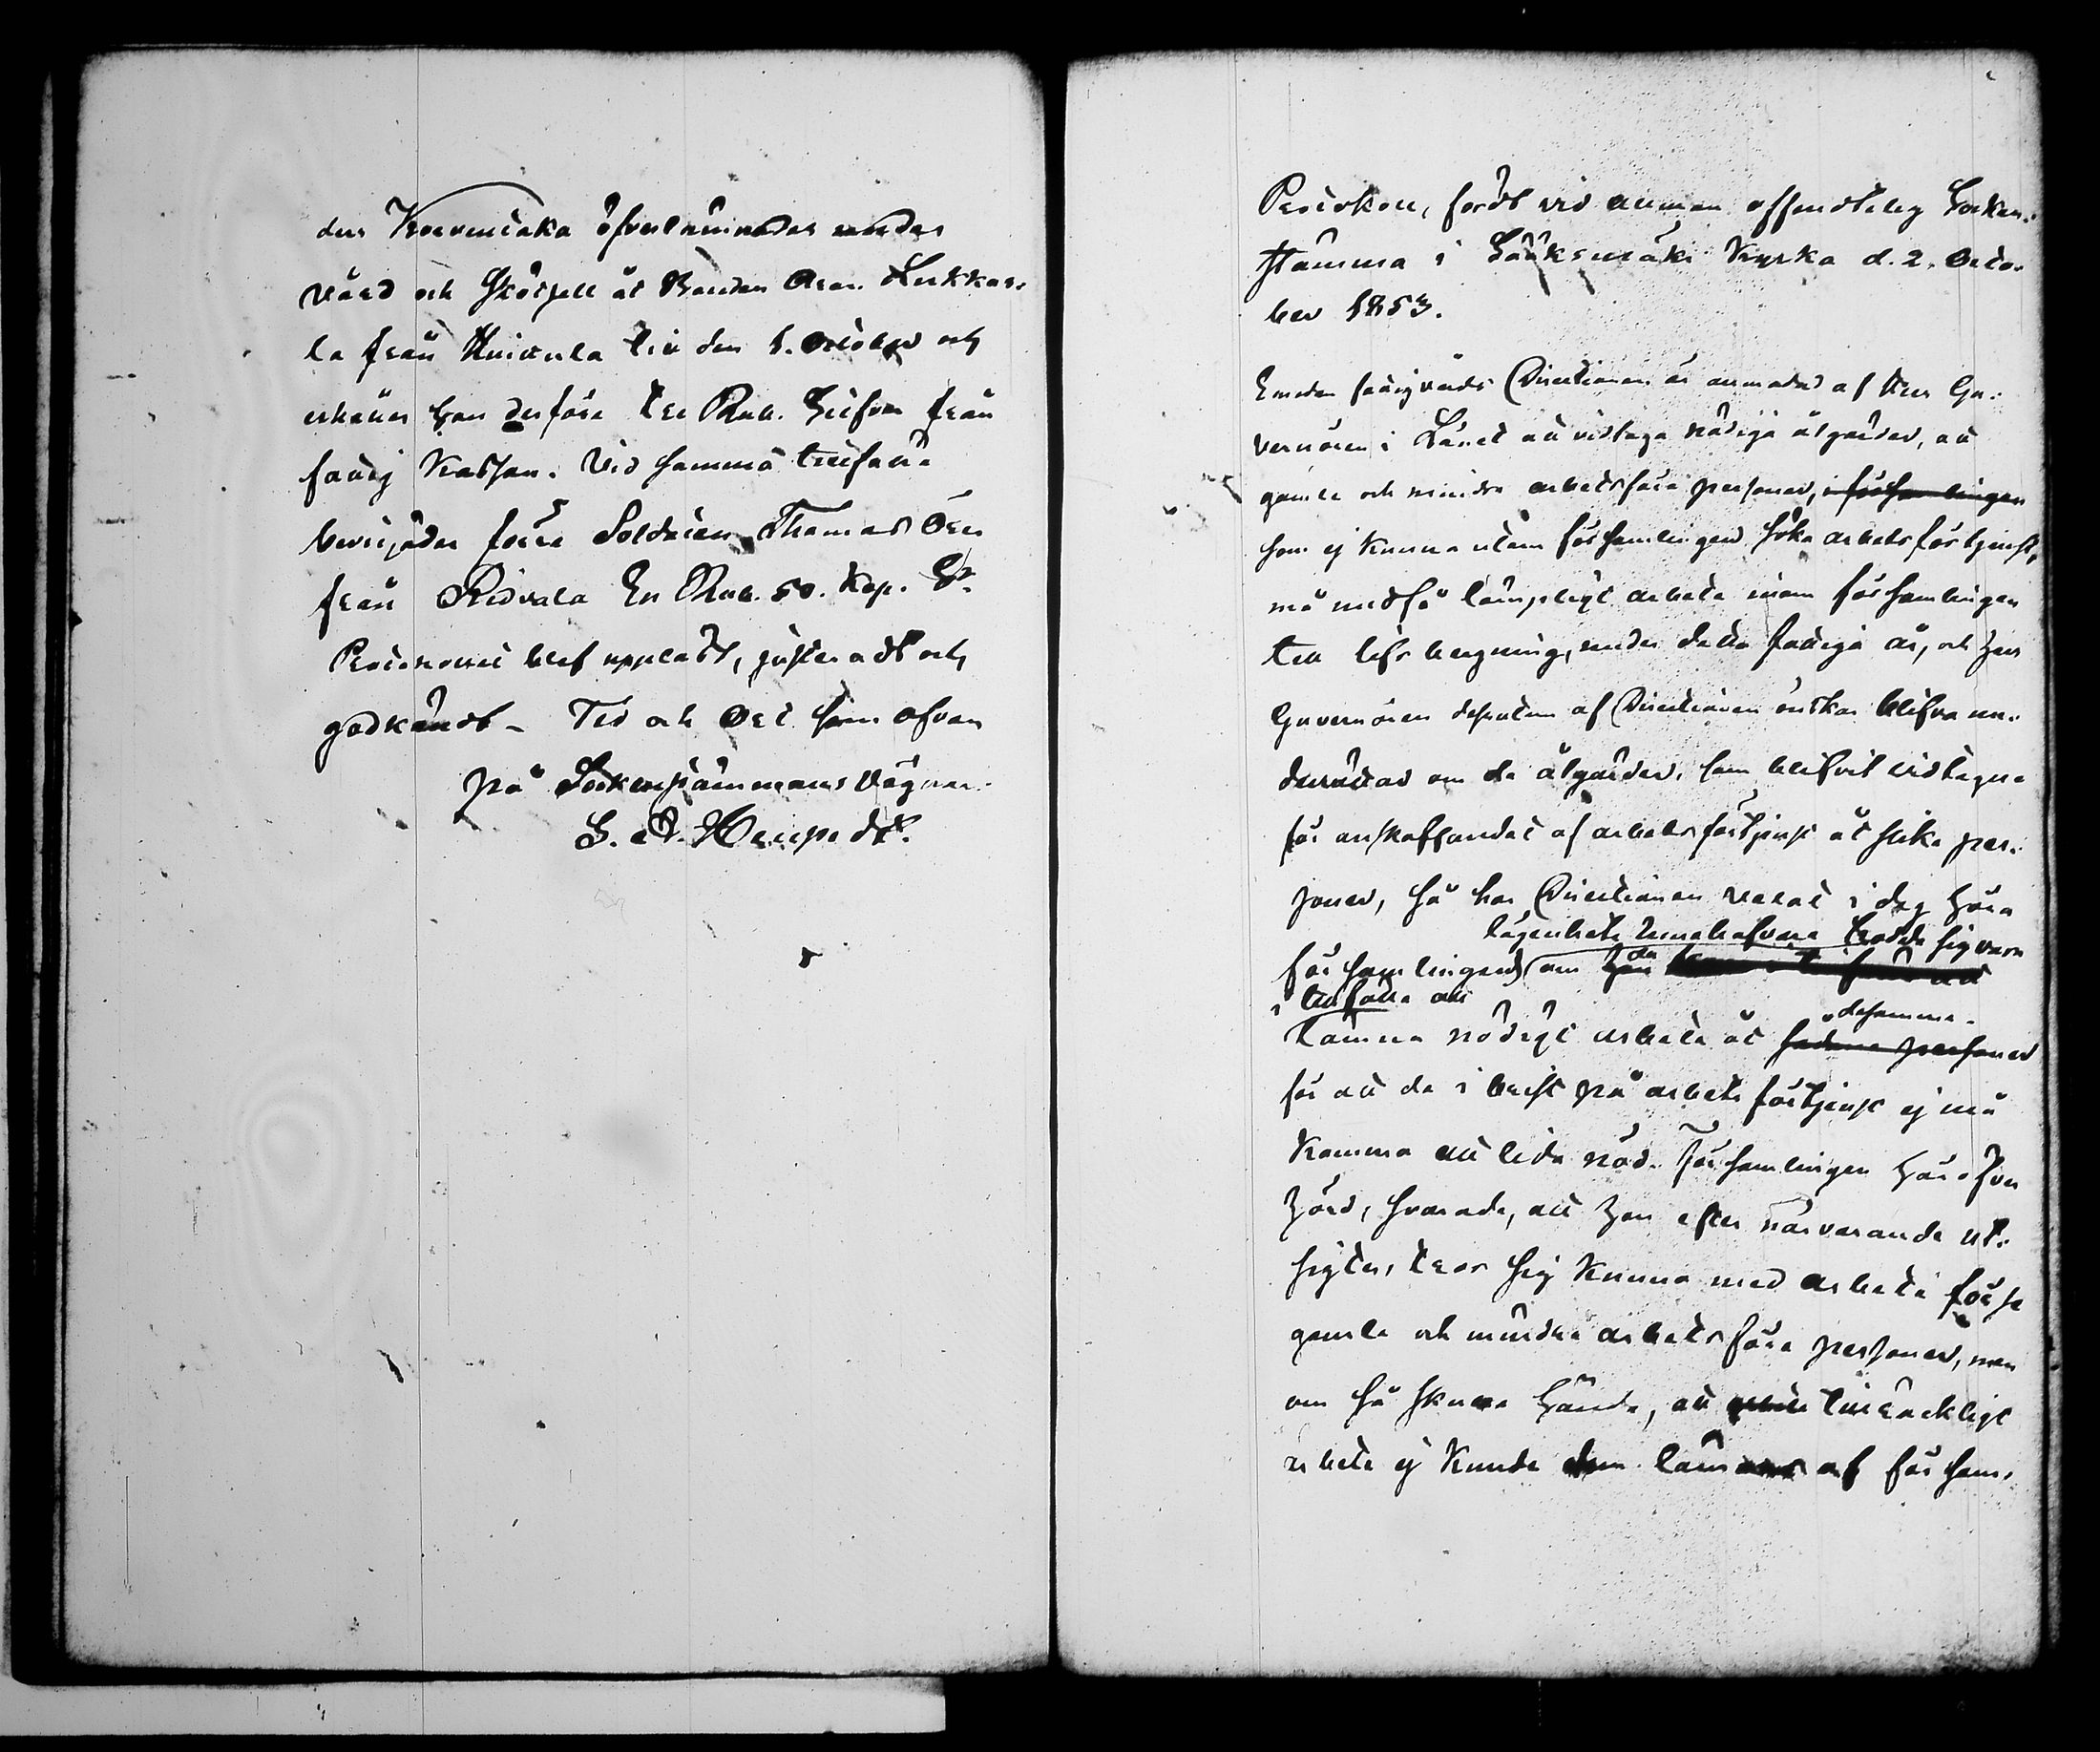 den Korvenoaka öfverlämnades under
vård och skötsell åt Bonden Aron Lukka-
la från Huivula till den 1. October och
erhåller han derföre tre Rub. Silfver från
fattig Kassan. Vid samma tillfälle
beviljades förre Soldaten Thomas Örn
från Ridvala En Rub. 50. Kop. Sr.
Protocollet blef uppläst, justeradt och
godkändt – Tid och Ort som ofvan
på Sockenstämmans vägnar.
Protokoll, fördt vid allmän offendtelig Socken-
stämma i Sääksmäki Kyrka d. 2. Octo-
ber 1853.
Emedan fattigvårds Directionen är anmodad af Herr Gu-
vernören i Länet att vidtaga nödiga åtgärder, att
gamle och mindre arbetsföre personer, i församlingen
som ej kunna utom församlingen söka arbetsförtjenst,
må medfå lämpligt arbete inom församlingen
till lifs bergning, under detta fattiga år, och Herr
Guvernören dessutom af Directionen önskar blifva un-
derrättad om de åtgärder, som blifvit vidtagne
för anskaffandet af arbetsförtjenst åt slika per-
soner, så har Directionen velat i dag höra
lägenhets Innehafvare trodde sig vara
församlingen, om de
i tillfälle att
desamma
lämna nödigt arbete åt sådane personer
för att de i brist på arbets förtjenst ej må
komma att lida nöd. Församlingen häröfver
hörd, svarade, att han efter närvarande ut-
sigter, tror sig kunna med arbete förse
gamle och mindre arbetsföre personer, men
om så skulle hända, att tillräckligt
arbete ej kunde dem lämnas af försam-